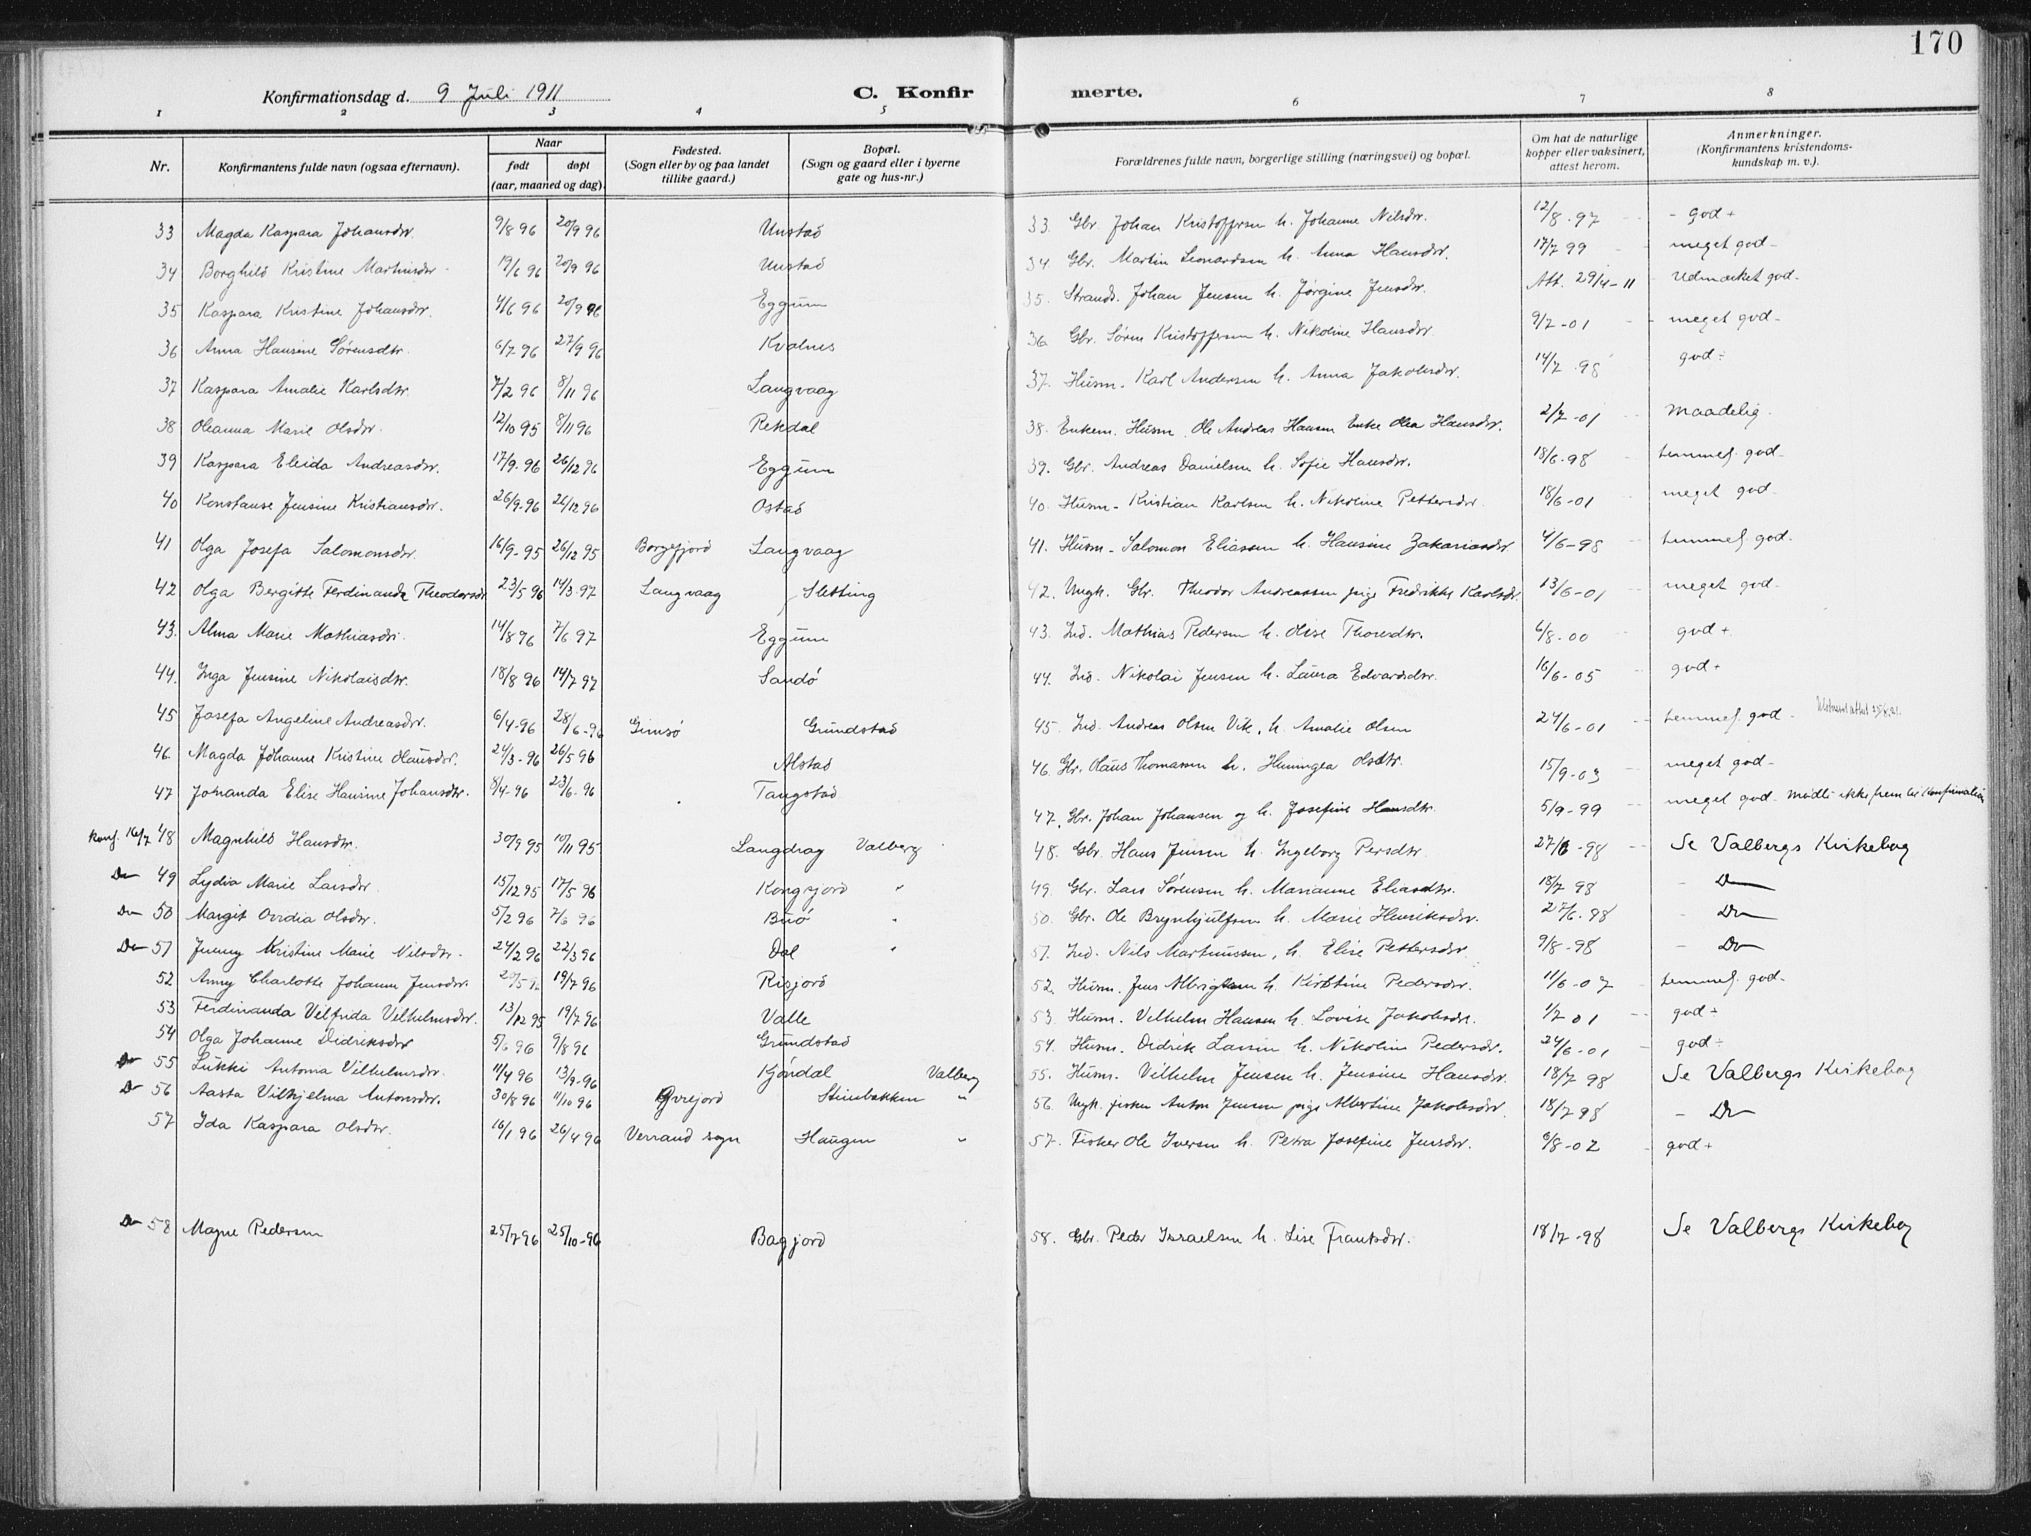 170
Konfirmationsdag d. 9 Juli 1911 C. Konfir merte.
1 2 3 4 5 6 7 8
Nr. Konfirmantens fulde navn (ogsaa efternavn). Naar født døpt (aar, maaned og dag). Fødested. (Sogn eller by og paa landet tillike gaard.) Bopæl. (Sogn og gaard eller i byerne gate og hus-nr.) Forældrenes fulde navn, borgerlige stilling (næringsvei) og bopæl. Om hat de naturlige kopper eller vaksinert, attest herom. Anmerkninger. (Konfirmantens kristendoms-kundskap m. v.).
33 Magda Kaspara Johansdtr. 9/8 96 20/9 96 Unstad 33. Gbr. Johan Kristoffersen h. Johanne Nilsdtr. 12/8-97 - god +
34 Borghild Kristine Martinsdtr. 19/6 96 20/9 96 Unstad 34 Gbr. Martin Leonardsen h. Anna Hansdtr. 17/7 99 - meget god -
35 Kaspara Kristine Johansdtr. 4/6 96 20/9 96 Eggum 35. Strands. Johan Jensen h. Jørgine Jensdtr. Att. 29/4-11 - udmærket god -
36 Anna Hansine Sørensdtr. 6/7 96 27/9 96 Kvalnes 36 Gbr. Søren Kristoffersen h. Nikoline Hansdtr. 9/7-01 - meget god -
37 Kaspara Amalie Karlsdtr. 7/2 96 8/11 96 Langvaag 37. Husm. Karl Andersen h. Anna Jakobsdtr. 14/7-98 god ÷
38 Oleanna Marie Olsdtr. 12/10 95 8/11 96 Rekdal 38. Enkem. Husm. Ole Andreas Hansen Enke Olea Hansdtr. 2/7-01 maadelig.
39 Kaspara Eleida Andreasdtr. 17/9-96 26/12 96 Eggum 39. Gbr. Andreas Danielsen h. Sofie Hansdtr. 18/6-98 temmel. god -
40 Konstanse Jensine Kristiansdtr. 26/9-96 26/12 96 Ostad 40. Husm- Kristian Karlsen h. Nikoline Pettersdtr. 18/6-01 meget god -
41 Olga Josefa Salomonsdtr. 16/9-95 26/12 95 Borgefjord Langvaag 41. Husm- Salomon Eliassen h. Hansine Zakariasdtr 4/6-98 temmel. god -
42 Olga Bergitte Ferdinande Theodorsdtr 23/5 96 14/3-97 Langvaag Sletting 42. Ungk. Gbr. Theodor Andreassen pige Fredrikke Karlsdtr. 13/6-01 meget god -
43. Alma Marie Mathiasdtr. 14/8 96 7/6 97 Eggum 43. Ind. Mathias Pedersen h. Olise Thoresdtr. 6/8-00 god +
44. Inga Jensine Nikolaisdtr. 18/8 96 14/7 97 Sandø 44. Ind. Nikolai Jensen h. Laura Edvardsdtr. 16/6-05 god +
45 Josefa Angeline Andreasdtr. 6/4-96 28/6-96 Gimsø Grundstad 45. Ind. Andreas Olsen Vik, h. Amalie Olsen 24/6-01 temmel. god -
46. Magda Johanne Kristine Olausdtr. 24/3-96 26/5 96 Alstad 46. Gbr. Olaus Thomassen h. Henningea Olsdtr. 15/9-03 meget god -
47 Johanda Elise Hansine Johansdtr. 8/4-96 23/6-96 Tangstad 47. Gbr. Johan Johansen og h. Josefine Hansdtr. 5/9-99 meget god - mødte ikke frem til Konfirmation
konf. 16/7 48 Magnhild Hansdtr. 30/9 95 10/11 95 Langdrag Valberg 48. Gbr. Hans Jensen h. Ingeborg Persdtr. 27/6-98 Se Valbergs Kirkebog
Do 49 Lydia Marie Larsdtr. 15/12 95 17/5 96 Kongsjord " 49. Gbr. Lars Sørensen h. Marianne Eliasdtr. 18/7 98 - Do
Do 50 Margit Ovidia Olsdtr. 5/2 96 7/6 96 Buø " 50. Gbr. Ole Brynhjulfsen h. Marie Henriksdtr. 27/6-98 - Do
Do 51 Jenny Kristine Marie Nilsdtr. 24/2 96 22/3 96 Dal " 51. Ind. Nils Martinussen, h. Elise Pettersdtr. 9/8-98 - Do
52 Anny Charlotte Johanne Jensdtr. 19/7 96 Risjord 52. Husm. Jens Albrigtsen h. Kirstine Pedersdtr. 11/6-07 temmel. god -
53 Ferdinanda Vilfrida Vilhelmsdtr. 13/12 95 19/7 96 Valle 53. Husm. Vilhelm Hansen h. Lovise Jakobsdtr. 1/7 01 god ÷
54 Olga Johanne Didriksdtr 5/6 96 9/8 96 Grundstad 54. Husm. Didrik Larsen h. Nikoline Pedersdtr. 24/6-01 god ÷
Do 55 Lukki Antona Vilhelmsdtr. 11/4 96 13/9-96 Kjøndal Valberg 55. Husm. Vilhelm Jensen h. Jensine Hansdtr. 18/7 98 Se Valbergs Kirkebog
Do 56 Aasta Vilhjelma Antonsdtr. 30/8 96 11/10 96 Øvrejord Steinbakken " 56. Ungk. fisker Anton Jensen pige Albertine Jakobsdtr. 18/7 98 - Do
57 Ida Kaspara Olsdtr. 16/1 96 26/4 96 Verrand sogn Haugen " 57. Fisker Ole Iversen h. Petra Josefine Jensdtr. 6/8-02 - god +
Do 58 Magne Pedersen 25/7 96 25/10-96 Bagjord 58. Gbr. Peder Israelsen h. Lise Frantsdtr. 18/7-98 Se Valbergs Kirkebog